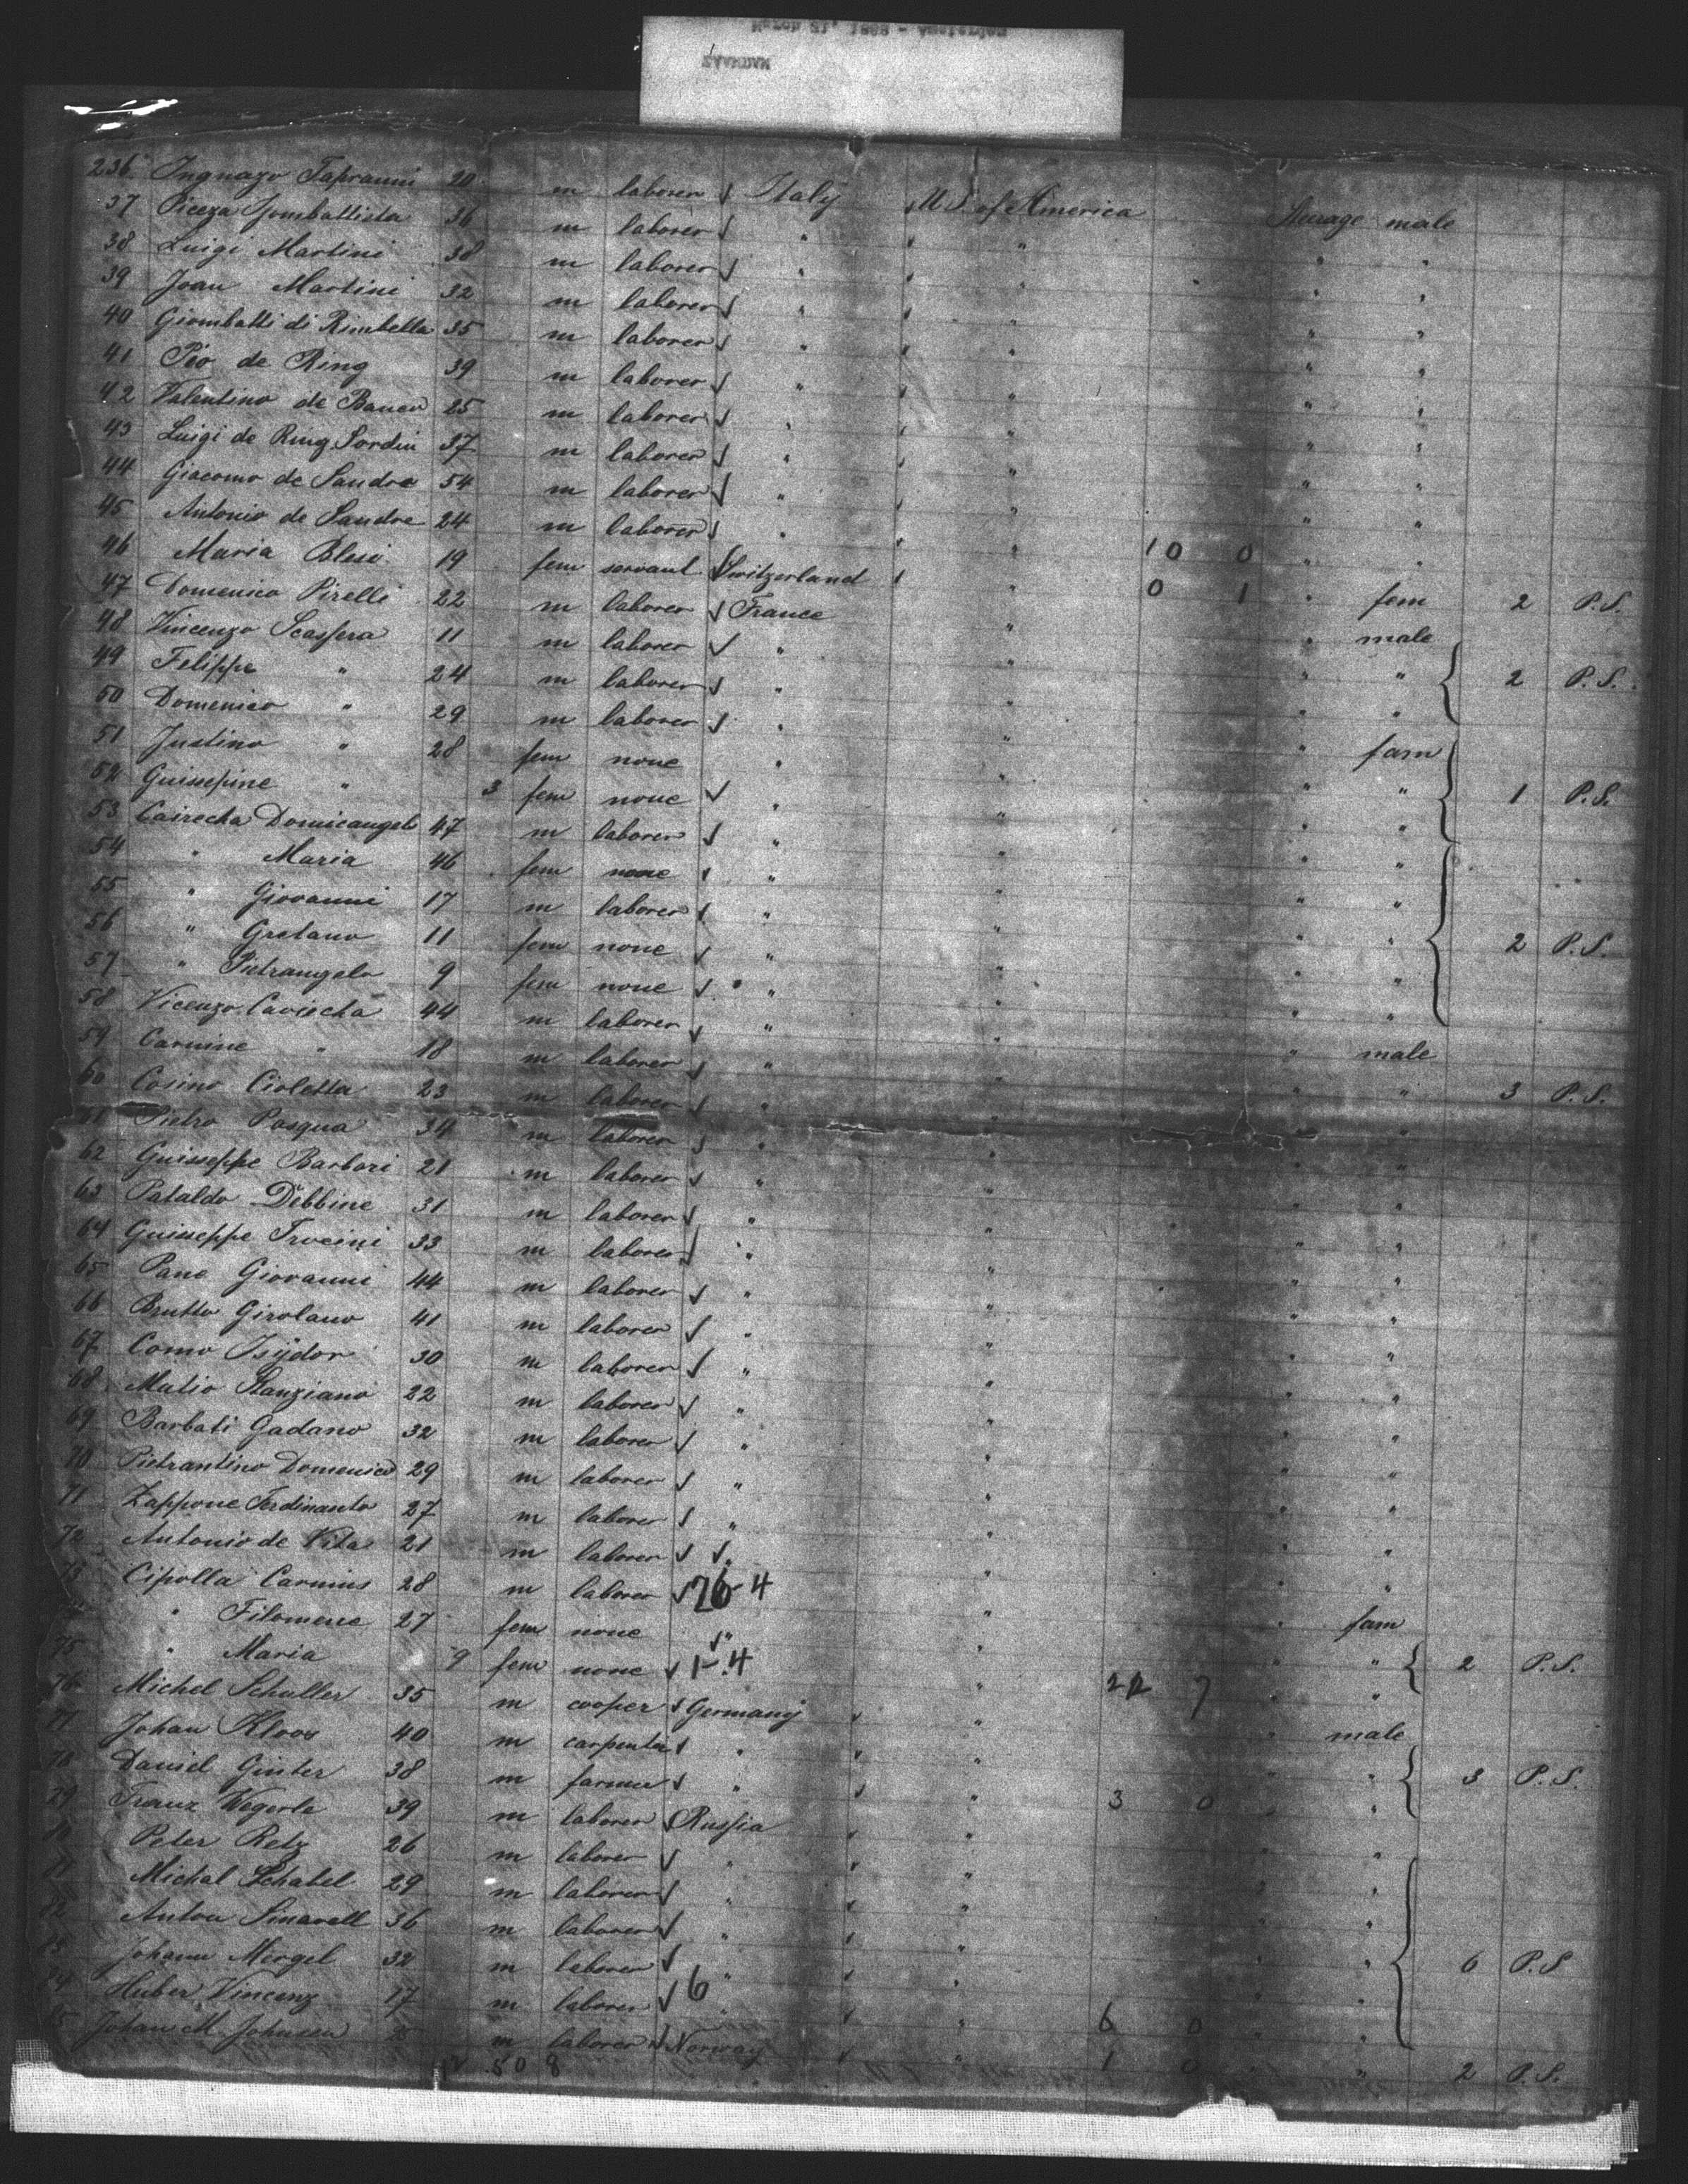 236 Ingnazo Tapranni 20 m laborer √ Italy U.S. of America Steerage male
37 Piceza Gombattista 36 m laborer √ " " " "
38 Luigi Martini 38 m laborer √ " " " "
39 Joan Martini 32 m laborer √ " " " "
40 Giombatti di Rimbella 35 m laborer √ " " " "
41 Pio de Ring 39 m laborer √ " " " "
42 Valentino de Banco 25 m laborer √ " " " "
43 Luigi de Ring Sordin 37 m laborer √ " " " "
44 Giacomo de Sandre 54 m laborer √ " " " "
45 Antonio de Sandre 24 m laborer √ " " 10 0 " "
46 Maria Blesi 19 fem servant √ Switzerland " 0 1 " fem 2 P.S.
47 Domenico Pirelli 22 m laborer √ France " " male
48 Vincenzo Scassera 11 m laborer √ " " " " 2 P.S.
49 Felippe " 24 m laborer √ " " " "
50 Domenico " 29 m laborer √ " " " fam
51 Justino " 28 fem none " " " "
52 Guissepine " 3 fem none √ " " " " 1 P.S.
53 Cairecha Domicangelo 47 m laborer √ " " " "
54 " Maria 46 fem none √ " " " "
55 " Giovanni 17 m laborer √ " " " "
56 " Gretano 11 fem none √ " " " " 2 P.S.
57 " Pietrangelo 9 fem none √ " " " "
58 Vicenzo Cavrecha 44 m laborer √ " " " male
59 Carmine " 18 m laborer √ " " " " 3 P.S.
60 Cosino Cioletta 23 m laborer √ " " " "
61 Pietro Pasqua 34 m laborer √ " " " "
62 Guisseppe Barbari 21 m laborer √ " " " "
63 Pataldo Debbine 31 m laborer √ " " " "
64 Guisseppe Trocini 33 m laborer √ " " " "
65 Pane Giovanni 44 m laborer √ " " " "
66 Brutto Girolano 41 m laborer √ " " " "
67 Como Isijdor 30 m laborer √ " " " "
68 Matio Stanziano 22 m laborer √ " " " "
69 Barbati Gadano 32 m laborer √ " " " "
70 Pietrantino Domenico 29 m laborer √ " " " "
71 Zappone Ferdinanto 27 m laborer √ " " " "
72 Antonio de Vita 21 m laborer √ √ " " " "
73 Cipolla Carmius 28 m laborer √ 26-4 " " fam
" Filomene 27 fem none √ " " " " 2 P.S.
75 " Maria 9 fem none √ 1-4 " 22 7 " "
76 Michel Schuller 35 m cooper √ Germany " " male
77 Johan Kloos 40 m carpenter √ " " " " 3 P.S.
78 Daniel Ginter 38 m farmer √ " " 3 0 " "
79 Franz Wegerle 39 m laborer √ Russia " " "
Peter Retz 26 m laborer √ " " " "
Michal Schatel 29 m laborer √ " " " "
Anton Sinarell 36 m laborer √ " " " "
Johann Mergel 32 m laborer √ " " " " 6 P.S
84 Huber Vincenz 17 m laborer √ 6 " " 6 0 " "
85 Johan M. Johnsen m laborer √ Norway " 1 0 " " 2 P.S.
50 8